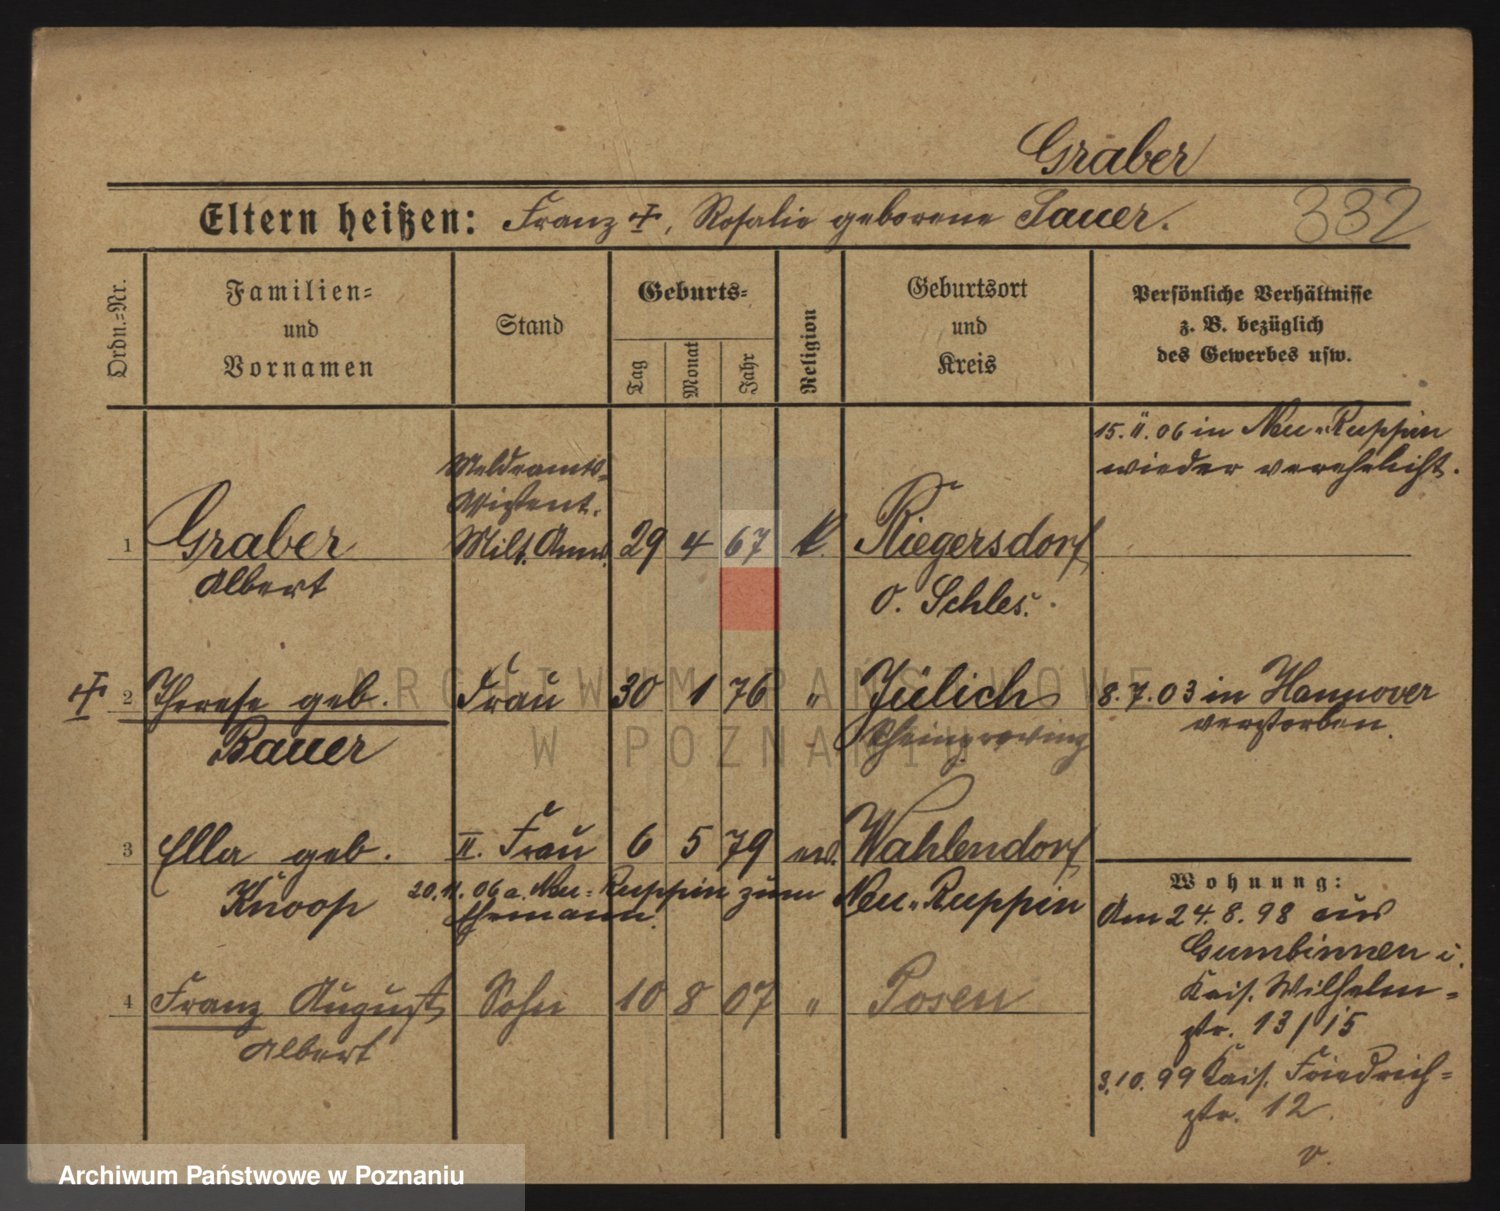 Graber
Eltern heißen: Franz †, Rosalie geborene Sauer. 332
Ordn.=Nr.
Familien=
und
Vornamen
Stand
Geburts=
Tag
Monat
Jahr
Religion
Geburtsort
und
Kreis
Persönliche Verhältnisse
z. B. bezüglich
des Gewerbes usw.
15. II. 06 in Neu-Ruppin
wieder verehelicht.
Meldeamts-
Assistent.
1 Graber Milt. Anw. 29 4 67 k. Riegersdorf
Albert O. Schles.
† 2 Therese geb. Frau 30 1 76 " Jülich 8. 7. 03 in Hannover
Bauer Rheinprovinz verstorben.
3 Ella geb. II. Frau 6 5 79 ev. Wahlendorf
Knoop 20. 11. 06 a. Neu-Ruppin zum Neu-Ruppin
Ehemann.
4 Franz August Sohn 10 8 07 " Posen
Albert
Wohnung:
Am 24. 8. 98 aus
Gumbinnen i.
Kais. Wilhelm-
str. 13/15
3. 10. 99 Kais. Friedrich-
str. 12.
v.
ARCHIWUM PAŃSTWOWE
W POZNANIU
Archiwum Państwowe w Poznaniu